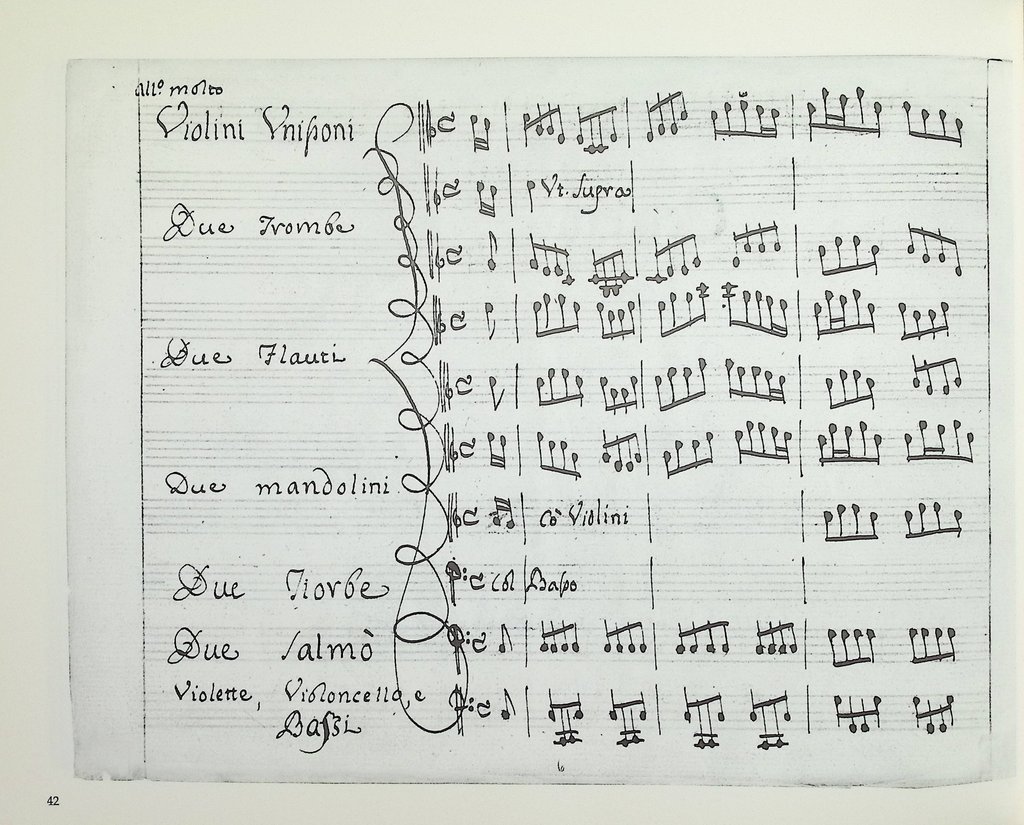 All⁰ molto
Violini Vnißoni
Vt. Supra
Due Trombe
Due Flauti
Due mandolini
Cò Violini
Due Tiorbe
Col Baßo
Due Salmò
Violette, Violoncello, e
Baßi
6
42